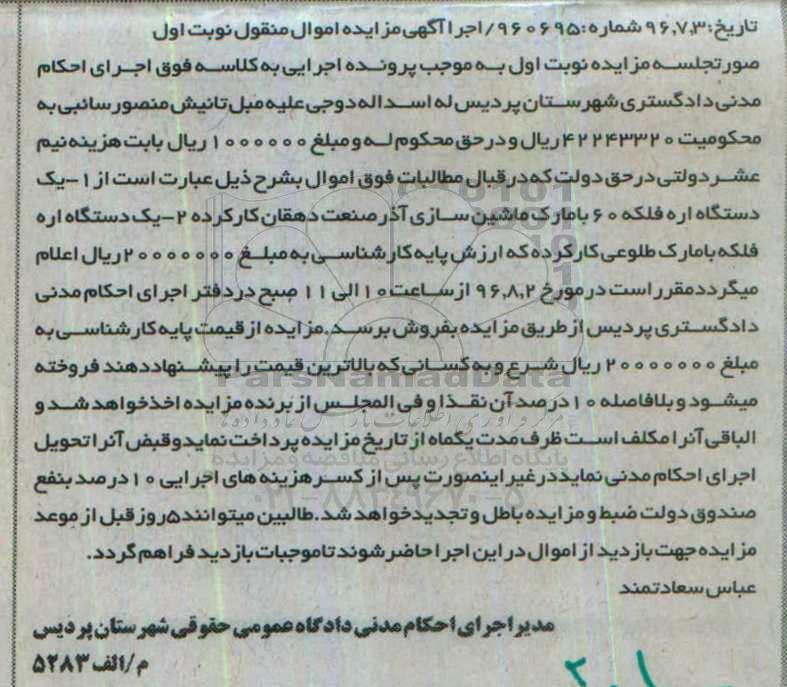 تاریخ:۹۶,۷,۳ شماره:۹۶۰۶۹۵/اجرا آگهی مزایده اموال منقول نوبت اول
صورتجلسه مزایده نوبت اول به موجب پرونده اجرایی به کلاسه فوق اجرای احکام
مدنی دادگستری شهرستان پردیس له اسداله دوجی علیه مبل تانیش منصور سائبی به
محکومیت ۴۲۲۴۳۳۲۰ ریال و در حق محکوم له و مبلغ ۱۰۰۰۰۰۰ ریال بابت هزینه نیم
عشر دولتی در حق دولت که در قبال مطالبات فوق اموال بشرح ذیل عبارت است از ۱-یک
دستگاه اره فلکه ۶۰ با مارک ماشین سازی آذر صنعت دهقان کارکرده ۲-یک دستگاه اره
فلکه با مارک طلوعی کارکرده که ارزش پایه کارشناسی به مبلغ ۲۰۰۰۰۰۰۰ ریال اعلام
میگردد مقرر است در مورخ ۹۶,۸,۲ از ساعت ۱۰ الی ۱۱ صبح در دفتر اجرای احکام مدنی
دادگستری پردیس از طریق مزایده بفروش برسد.مزایده از قیمت پایه کارشناسی به
مبلغ ۲۰۰۰۰۰۰۰ ریال شرع و به کسانی که بالاترین قیمت را پیشنهاد دهند فروخته
میشود و بلافاصله ۱۰ درصد آن نقدا و فی المجلس از برنده مزایده اخذ خواهد شد و
الباقی آنرا مکلف است ظرف مدت یگماه از تاریخ مزایده پرداخت نماید و قبض آنرا تحویل
اجرای احکام مدنی نماید در غیر اینصورت پس از کسر هزینه های اجرایی ۱۰ درصد بنفع
صندوق دولت ضبط و مزایده باطل و تجدید خواهد شد.طالبین میتوانند ۵ روز قبل از موعد
مزایده جهت بازدید از اموال در این اجرا حاضر شوند تا موجبات بازدید فراهم گردد.
عباس سعادتمند
مدیر اجرای احکام مدنی دادگاه عمومی حقوقی شهرستان پردیس
م/الف ۵۲۸۳
ParsNamadData
پایگاه اطلاع رسانی مناقصه و مزایده
۰۲۱-۸۸۳۴۹۶۷۰-۵